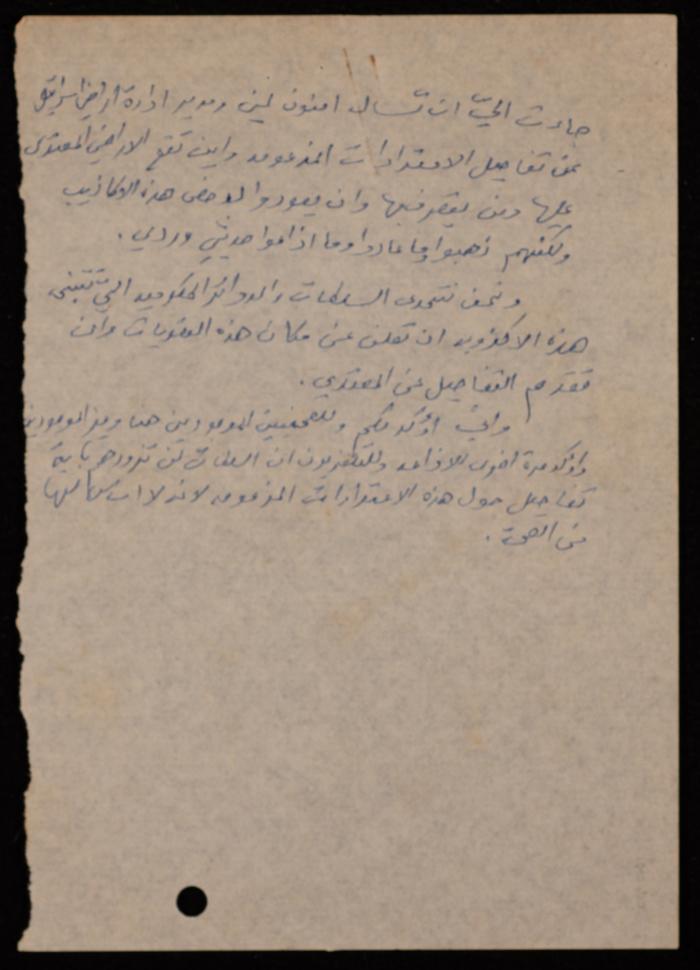 جاءت اليّ ان تسال امنون لين ومدير ادارة اراضي اسرائيل
عن تفاصيل الاعتداءات المزعومه واين تقع الاراضي المعتدى
عليها ومن يقترفها وان يعودوا لدحض هذه الاكاذيب
ولكنهم ذهبوا وما عادوا وما اذاعوا حديثي وردي .
ونحن نتحدى السلطات والدوائر الحكوميه التي تتبنى
هذه الاكذوبه ان تعلن عن مكان هذه وان
تقدم التفاصيل عن المعتدي .
واني اؤكد لكم وللصحفيين الموجودين هنا وغير الموجودين
واؤكد مرة اخرى للاذاعه وللتلفزيون ان السلطات لن تزودهم باية
تفاصيل حول هذه الاعتداءات المزعومه لانه لا اساس لها
من الصحة .